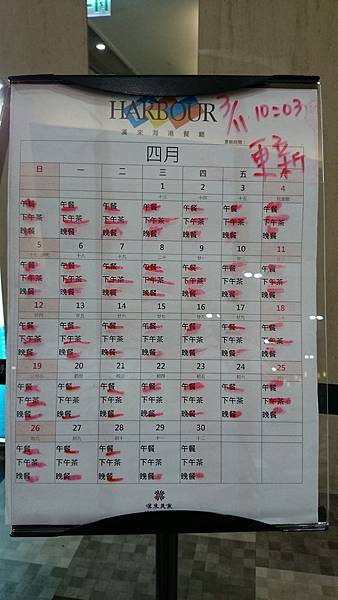 HARBOUR
漢來海港餐廳
更新時間：
3/11 10:03
更新
四月
日 一 二 三 四 五 六
1 2 3 4
十三 十四 十五 兒童節
午餐 午餐 午餐 午餐 午餐 午餐 午餐
下午茶 下午茶 下午茶 下午茶 下午茶 下午茶 下午茶
晚餐 晚餐 晚餐 晚餐 晚餐 晚餐 晚餐
5 6 7 8 9 10 11
十八 十九 二十 廿一 廿二 廿三
午餐 午餐 午餐 午餐 午餐 午餐 午餐
下午茶 下午茶 下午茶 下午茶 下午茶 下午茶 下午茶
晚餐 晚餐 晚餐 晚餐 晚餐 晚餐 晚餐
12 13 14 15 16 17 18
廿四 廿五 廿六 廿七 廿九
午餐 午餐 午餐 午餐 午餐 午餐 午餐
下午茶 下午茶 下午茶 下午茶 下午茶 下午茶 下午茶
晚餐 晚餐 晚餐 晚餐 晚餐 晚餐 晚餐
19 20 21 22 23 24 25
初三 初四 初五 初六
午餐 午餐 午餐 午餐 午餐 午餐 午餐
下午茶 下午茶 下午茶 下午茶 下午茶 下午茶 下午茶
晚餐 晚餐 晚餐 晚餐 晚餐 晚餐 晚餐
26 27 28 29 30
初九 初十 十一 十二
午餐 午餐 午餐 午餐 午餐
下午茶 下午茶 下午茶 下午茶 下午茶
晚餐 晚餐 晚餐 晚餐 晚餐
漢來美食